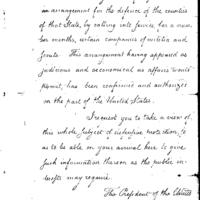 an arrangement for the defence of the counties
of that State, by calling into service for a num-
ber months, certain companies of militia and
Scouts. This arrangement having appeared as
judicious and oeconomical as affairs would
permit, has been confirmed and authorized
on the part of the United States.
I request you to take a view of
this whole subject of defensive protection, so
as to be able on your arrival here to give
such information thereon as the public in-
terests may require.
The President of the United